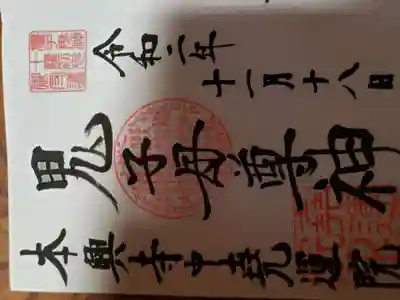 令和二年
十一月十八日
鬼子母尊神
本興寺中尭運院